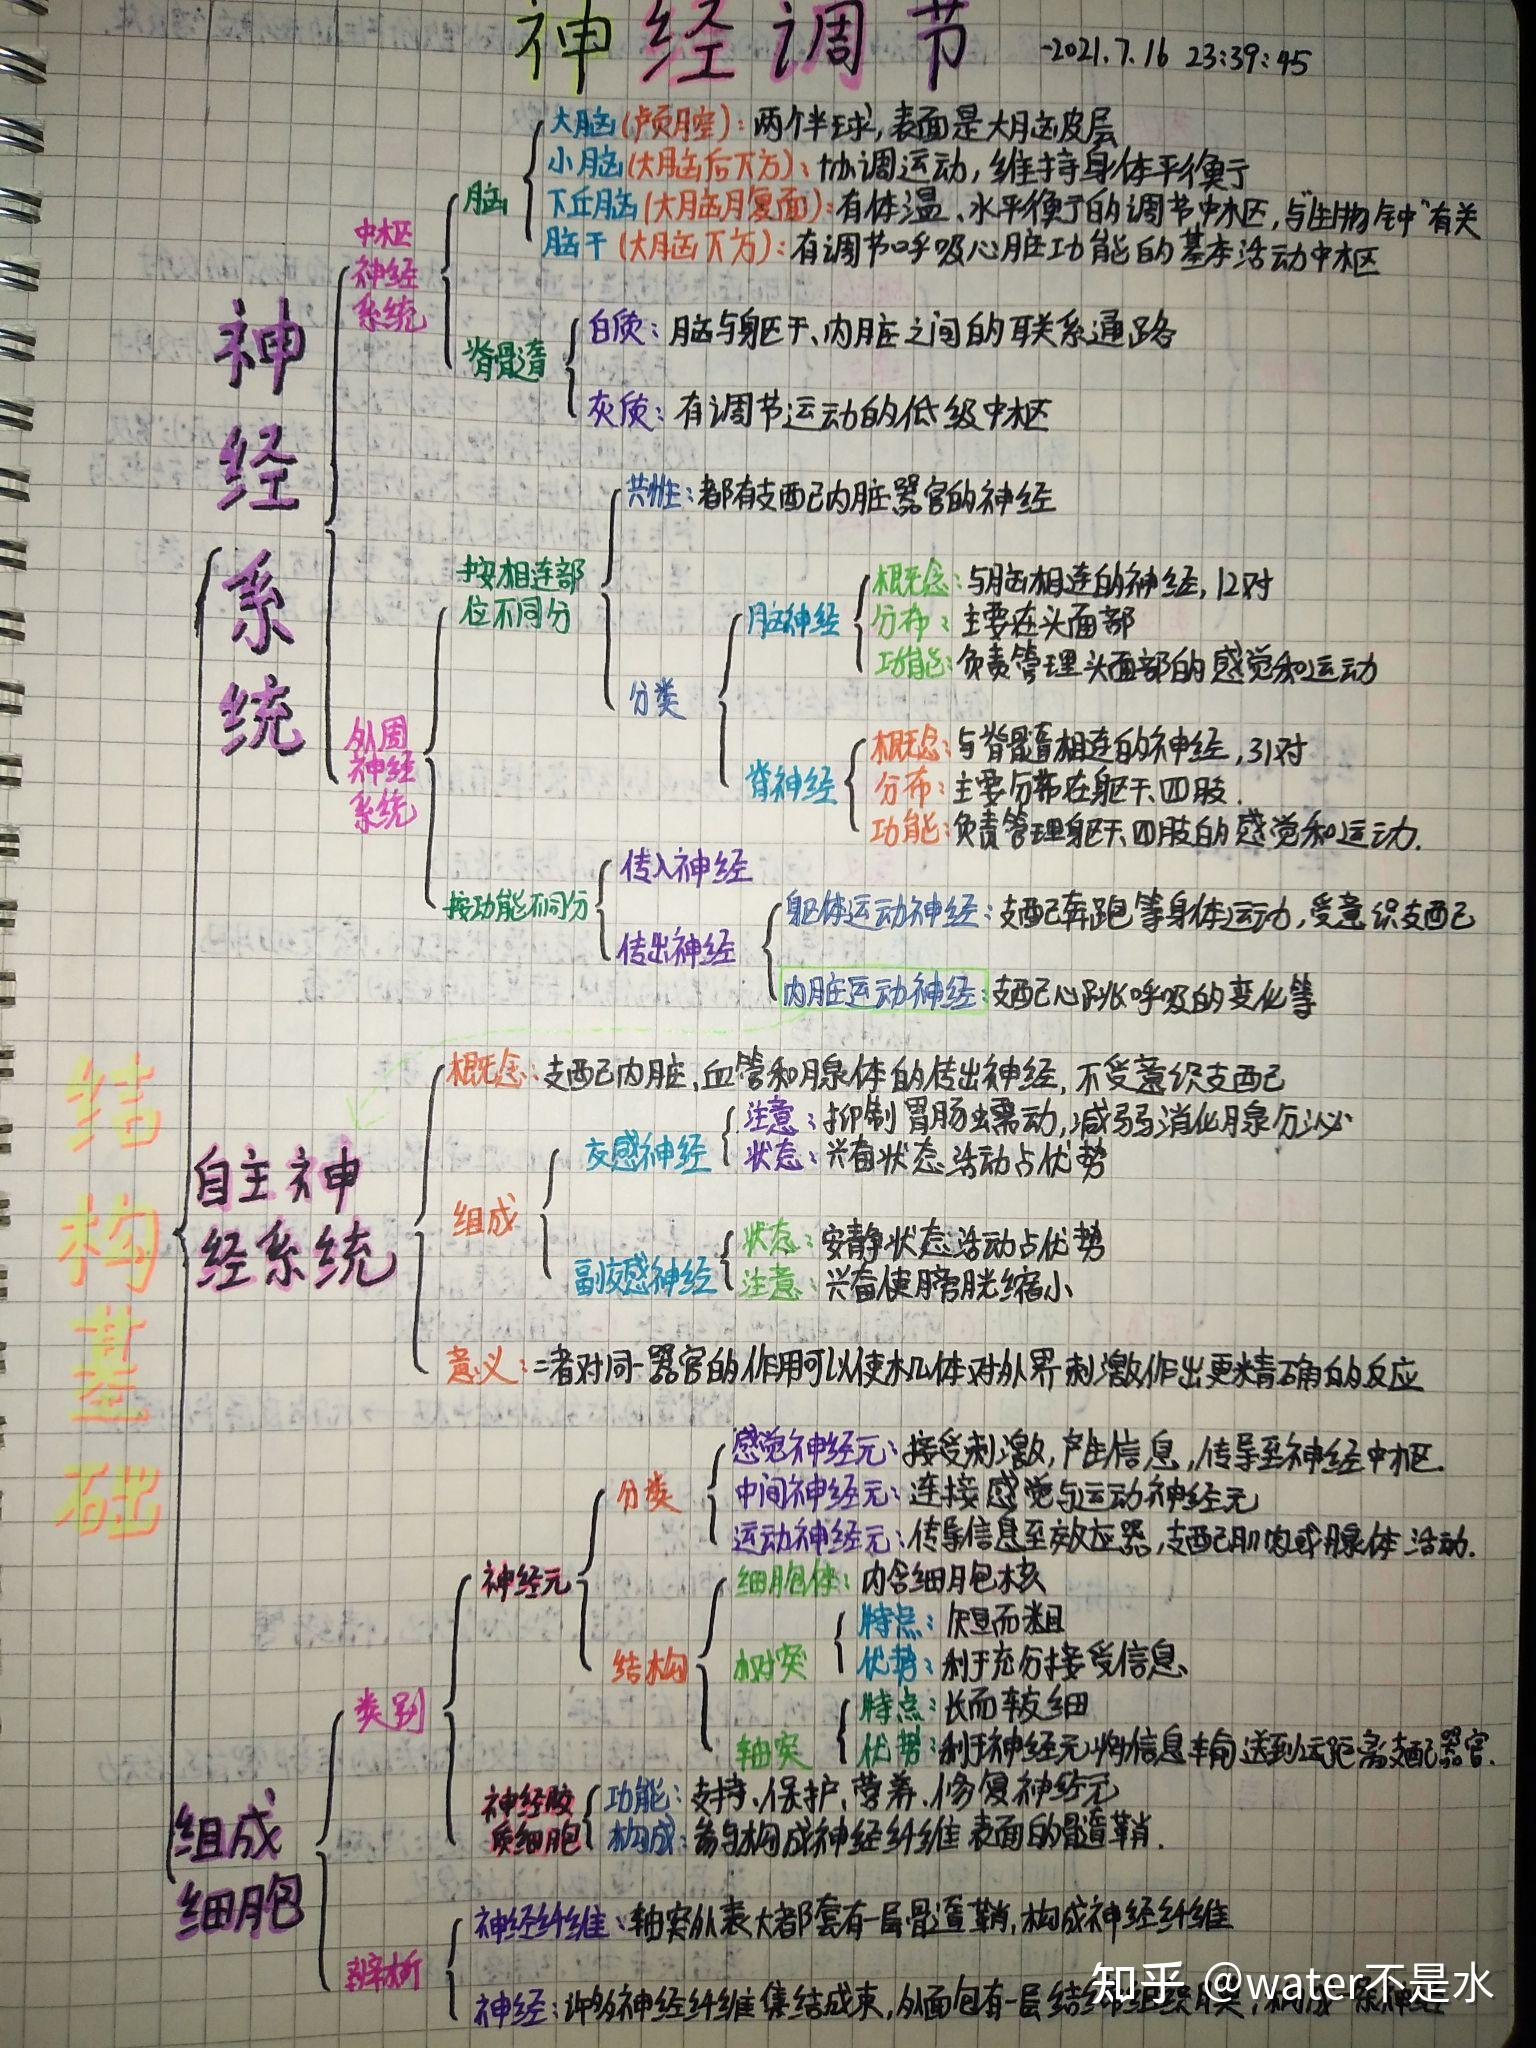 神经调节
-2021.7.16 23:39:45
结构基础
神经系统
中枢神经系统
脑
大脑(颅腔):两个半球,表面是大脑皮层
小脑(大脑后下方):协调运动,维持身体平衡
下丘脑(大脑腹面):有体温、水平衡的调节中枢,与"生物钟"有关
脑干(大脑下方):有调节呼吸心脏功能的基本活动中枢
脊髓
白质:脑与躯干、内脏之间的联系通路
灰质:有调节运动的低级中枢
外周神经系统
按相连部位不同分
共性:都有支配内脏器官的神经
分类
脑神经
概念:与脑相连的神经,12对
分布:主要在头面部
功能:负责管理头面部的感觉和运动
脊神经
概念:与脊髓相连的神经,31对
分布:主要分布在躯干、四肢.
功能:负责管理躯干、四肢的感觉和运动.
按功能不同分
传入神经
传出神经
躯体运动神经:支配奔跑等身体运动,受意识支配
内脏运动神经:支配心跳呼吸的变化等
自主神经系统
概念:支配内脏、血管和腺体的传出神经,不受意识支配
组成
交感神经
注意:抑制胃肠蠕动,减弱消化腺分泌
状态:兴奋状态活动占优势
副交感神经
状态:安静状态活动占优势
注意:兴奋使膀胱缩小
意义:二者对同一器官的作用可以使机体对外界刺激作出更精确的反应
组成细胞
类别
神经元
分类
感觉神经元:接受刺激,产生信息,传导至神经中枢.
中间神经元:连接感觉与运动神经元
运动神经元:传导信息至效应器,支配肌肉或腺体活动.
结构
细胞体:内含细胞核
树突
特点:短而粗
优势:利于充分接受信息
轴突
特点:长而较细
优势:利于神经元将信息输送到远距离支配器官.
神经胶质细胞
功能:支持、保护、营养、修复神经元
构成:参与构成神经纤维表面的髓鞘.
辨析
神经纤维:轴突外表大都套有一层髓鞘,构成神经纤维
神经:许多神经纤维集结成束,外面包有一层结
知乎 @water不是水